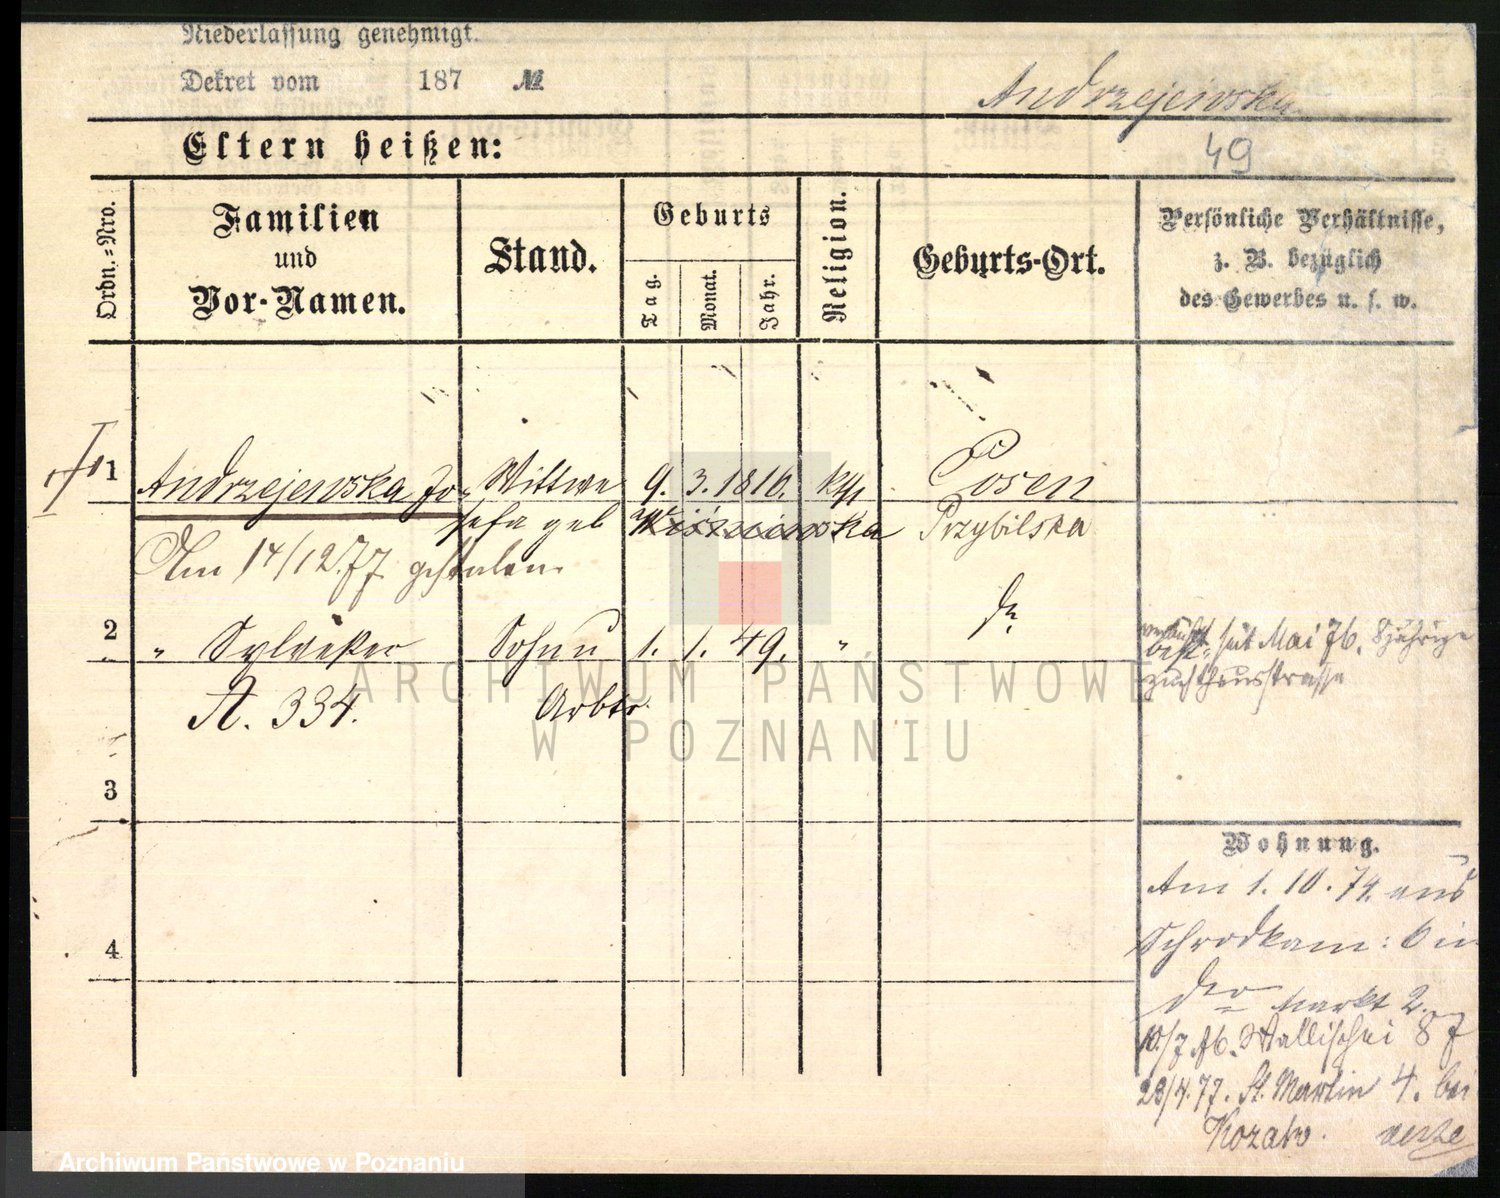 Niederlassung genehmigt.
Dekret vom 187 №
Andrzejewska
Eltern heißen:
49
Ordn.=Nro.
Familien
und
Vor-Namen.
Stand.
Geburts
Tag.
Monat.
Jahr.
Religion.
Geburts-Ort.
Persönliche Verhältnisse,
z. B. bezüglich
des Gewerbes u. s. w.
1 Andrzejewska Jo- Wittwe 9. 3. 1816. Posen
sefa geb Przybilska
Am 14/12.77 gestorben
2 " Sylvester Sohn 1. 1. 49. " do
seit Mai 76. 8jährige
Zuchthausstrafe
A. 334. Arbtr.
3
4
Wohnung.
Am 1.10.74 aus
Schrodka 6 in
der Markt 2.
10/7 76. Wallischei 87
23/4.77. St. Martin 4. bei
ARCHIWUM PAŃSTWOWE
W POZNANIU
Archiwum Państwowe w Poznaniu